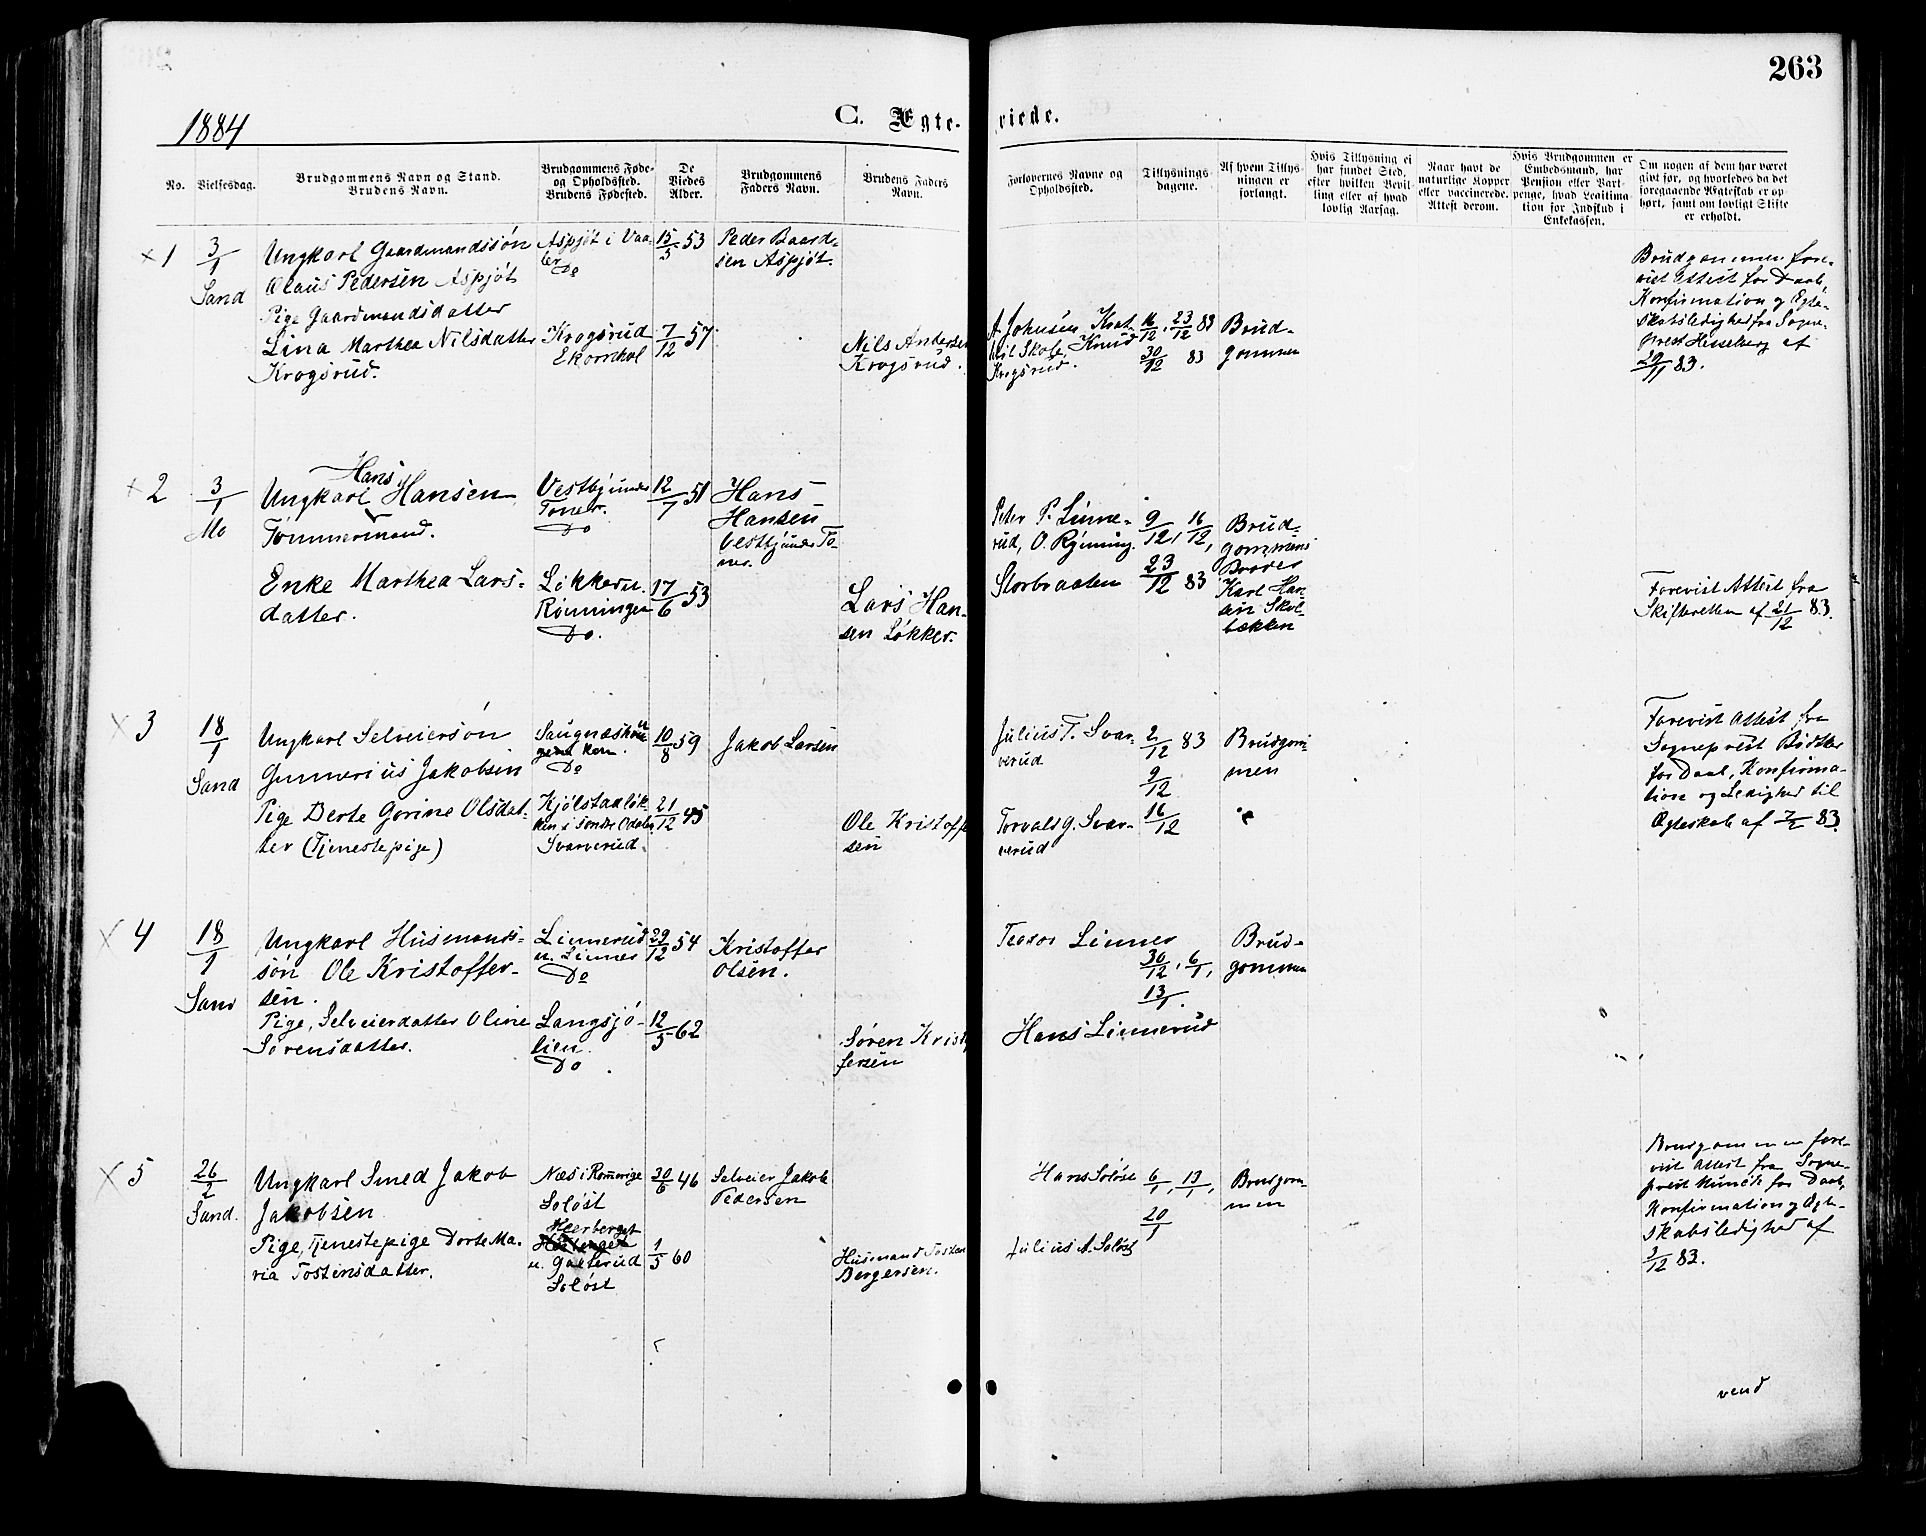 263
1884
C. Ægte-
viede.
No.
Vielsesdag.
Brudgommens Navn og Stand.
Brudens Navn.
Brudgommens Føde-
og Opholdssted.
Brudens Fødested.
De
Viedes
Alder.
Brudgommens
Faders Navn.
Brudens Faders
Navn.
Forlovernes Navne og
Opholdssted.
Tillysnings-
dagene.
Af hvem Tillys-
ningen er
forlangt.
Hvis Tillysning ei
har fundet Sted,
efter hvilken Bevil-
ling eller af hvad
lovlig Aarsag.
Naar havt de
naturlige Kopper
eller vaccinerede.
Attest derom.
Hvis Brudgommen er
Embedsmand, har
Pension eller Vart-
penge, hvad Legitima-
tion for Indskud i
Enkekassen.
Om nogen af dem har været
gift før, og hvorledes da det
foregaaende Ægteskab er op-
hørt, samt om lovligt Skifte
er erholdt.
x 1
3/1
Sand
Ungkarl Gaardmandssøn
Olaus Pedersen Aspjøt
Pige Gaardmandsdatter
Lina Marthea Nilsdatter
Krogsrud.
Aspjøt i Vaa-
ler
Do
Krogsrud
Ekornhol
15/5 53
7/12 57
Peder Baard-
sen Aspjøt.
Nils Andersen
Krogsrud.
A. Johnsen
Skole, Knud
Krogsrud.
16/12, 23/12 83
30/12 83
Brud-
gommen
Brudgommen fore-
vist Attest for Daab,
Konfirmation og Ægte-
skabsledighed fra Sogne-
prest Hesselberg af
29/11 83.
x 2
3/1
Mo
Hans
Ungkarl Hansen
Tømmermand.
Enke Marthea Lars-
datter.
Vestby under
Toner.
Do
Løkker u.
Rønningen
Do.
12/7 51
17/6 53
Hans
Hansen
Vestby under To-
ner.
Lars Han-
sen Løkker.
Peter P. Linne-
rud, O. Rymning.
Storbraaten
9/12, 16/12,
23/12 83
Brud-
gommens
Broder
Karl Han-
sen Skol-
bækken
Forevist Attest fra
Skifteretten af 21/12 83.
x 3
18/1
Sand
Ungkarl Selveiersøn
Gunnerius Jakobsen
Pige Berte Gorine Olsdat-
ter (Tjenestepige)
Do
Kjølstadløk-
ken i Søndre Odalen
Svarverud.
10/8 59
21/12 45
Jakob Larsen
Ole Kristoffer
sen
Julius T. Svar-
verud
Torvald G. Svar-
verud
2/12 83
9/12
16/12
Brudgom-
men
Forevist Attest fra
Sogneprest Bødtker
for Daab, Konfirma-
tion og Ledighed til
Ægteskab af 83.
x 4
18/1
Sand
Ungkarl Husmands-
søn Ole Kristoffer-
sen.
Pige, Selveierdatter Oline
Sørensdatter.
Linnerud
u. Linner
Do
Langsjø-
lien.
Do
29/12 54
12/5 62
Kristoffer
Olsen.
Søren Krist
fersen
Teodor Linner
Hans Linnerud
30/12, 6/1,
13/1.
Brud-
gommen
x 5
26/2
Sand.
Ungkarl Smed Jakob
Jakobsen
Pige, Tjenestepige Dorte Ma-
ria Tostensdatter.
Næs i Romerige
Soløst
Heerberget
u. Galterud
Soløst
30/6 46
1/5 60
Selveier Jakob
Pedersen
Husmand Tosten
Bergersen.
Hans Soløst
Julius A. Soløst
6/1, 13/1,
20/1
Brudgom-
men
Brudgommen fore-
vist Attest fra Sogne-
prest Munch for Daab,
Konfirmation og Ægte-
skabsledighed af
2/12 83.
vend